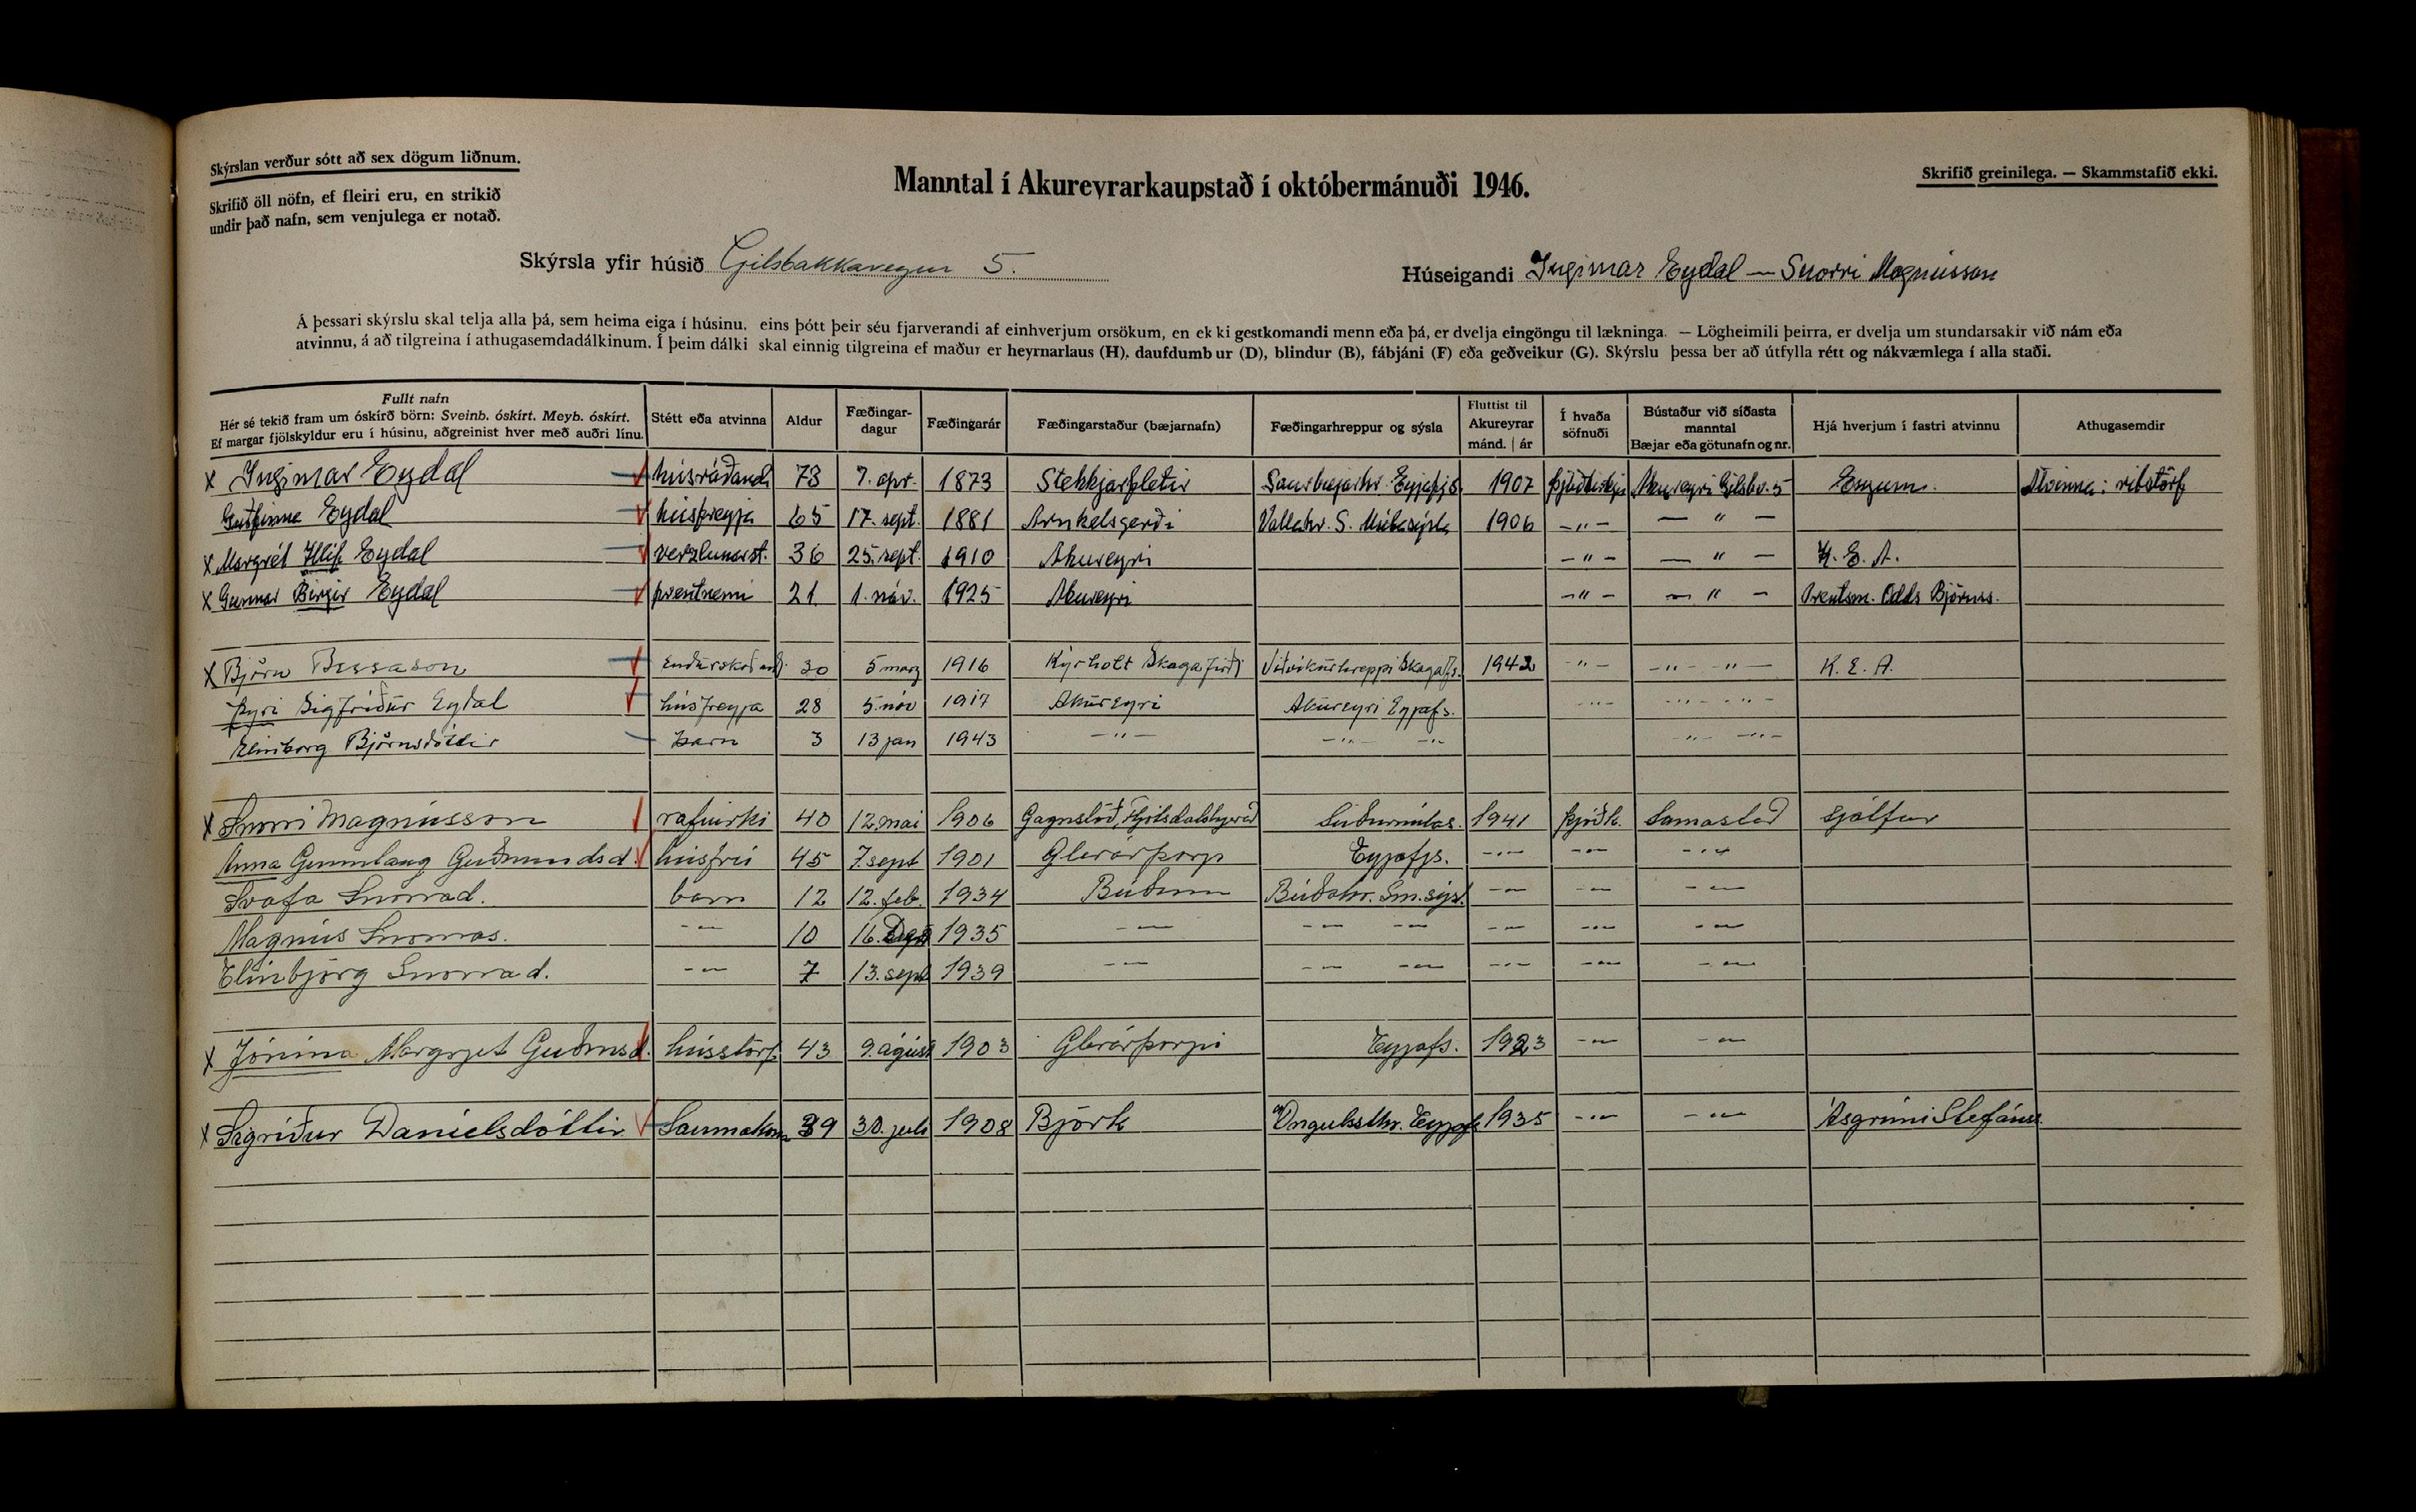 Skýrslan verður sótt að sex dögum liðnum.
Skrifið öll nöfn, ef fleiri eru, en strikið
undir það nafn, sem venjulega er notað.
Manntal í Akureyrarkaupstað í októbermánuði 1946.
Skrifið greinilega. — Skammstafið ekki.
Skýrsla yfir húsið Gilsbakkavegur 5.
Húseigandi Ingimar Eydal — Snorri Magnússon
Á þessari skýrslu skal telja alla þá, sem heima eiga í húsinu, eins þótt þeir séu fjarverandi af einhverjum orsökum, en ekki gestkomandi menn eða þá, er dvelja eingöngu til lækninga. — Lögheimili þeirra, er dvelja um stundarsakir við nám eða
atvinnu, á að tilgreina í athugasemdadálkinum. Í þeim dálki skal einnig tilgreina ef maður er heyrnarlaus (H), daufdumbur (D), blindur (B), fábjáni (F) eða geðveikur (G). Skýrslu þessa ber að útfylla rétt og nákvæmlega í alla staði.
Fullt nafn
Hér sé tekið fram um óskírð börn: Sveinb. óskírt. Meyb. óskírt.
Ef margar fjölskyldur eru í húsinu, aðgreinist hver með auðri línu.
Stétt eða atvinna
Aldur
Fæðingar-
dagur
Fæðingarár
Fæðingarstaður (bæjarnafn)
Fæðingarhreppur og sýsla
Fluttist til
Akureyrar
mánd. | ár
Í hvaða
söfnuði
Bústaður við síðasta
manntal
Bæjar eða götunafn og nr.
Hjá hverjum í fastri atvinnu
Athugasemdir
x Ingimar Eydal húsráðandi 73 7. apr. 1873 Stekkjarfletir Saurbæjarhr. Eyjafjs. 1907 þjóðkirkju Akureyri Gilsbv. 5 Engum. Atvinna: ritstörf
Guðfinna Eydal húsfreyja 65 17. sept. 1881 Arnkelsgerði Vallahr. S. Múlasýsla 1906 -"- — " —
x Margrét Hlíf Eydal verzlunarst. 36 25. sept. 1910 Akureyri -"- — " — K. E. A.
x Gunnar Birgir Eydal prentnemi 21 1. nóv. 1925 Akureyri -"- — " — Prentsm. Odds Björnss.
x Björn Bessason Endurskoðandi 30 5 marz 1916 Kýrholt Skagafirði Viðvíkurhreppi Skagafs. 1942 -"- -"- -"- K. E. A.
Þyri Sigfríður Eydal húsfreyja 28 5. nóv 1917 Akureyri Akureyri Eyjafs. -"- -"- -"-
Elinborg Björnsdóttir barn 3 13 jan 1943 -"- -"- -"- -"- -"-
x Snorri Magnússon rafvirki 40 12 mai 1906 Suðurmúlas. 1941 þjóðk. Samastað sjálfur
Anna Gunnlaug Guðmundsd. húsfrú 45 7. sept 1901 Glerárþorp Eyjafjs. -"- -"- -"-
Svafa Snorrad. barn 12 12. feb. 1934 Búðum Búðahr. Sm. sýsl. -"- -"- -"-
Magnús Snorras. -"- 10 16. 1935 -"- -"- -"- -"- -"- -"-
Elinbjörg Snorrad. -"- 7 13. sept 1939 -"- -"- -"- -"- -"- -"-
x Jónina Margrjet Guðmsd. hússtörf 43 9. ágúst 1903 Glerárþorpi Eyjafs. 1923 -"- -"-
x Sigríður Daníelsdóttir Saumakona 39 30. juli 1908 Björk Öngulssthr. Eyjafs 1935 -"- -"- Ásgrími Stefánss.